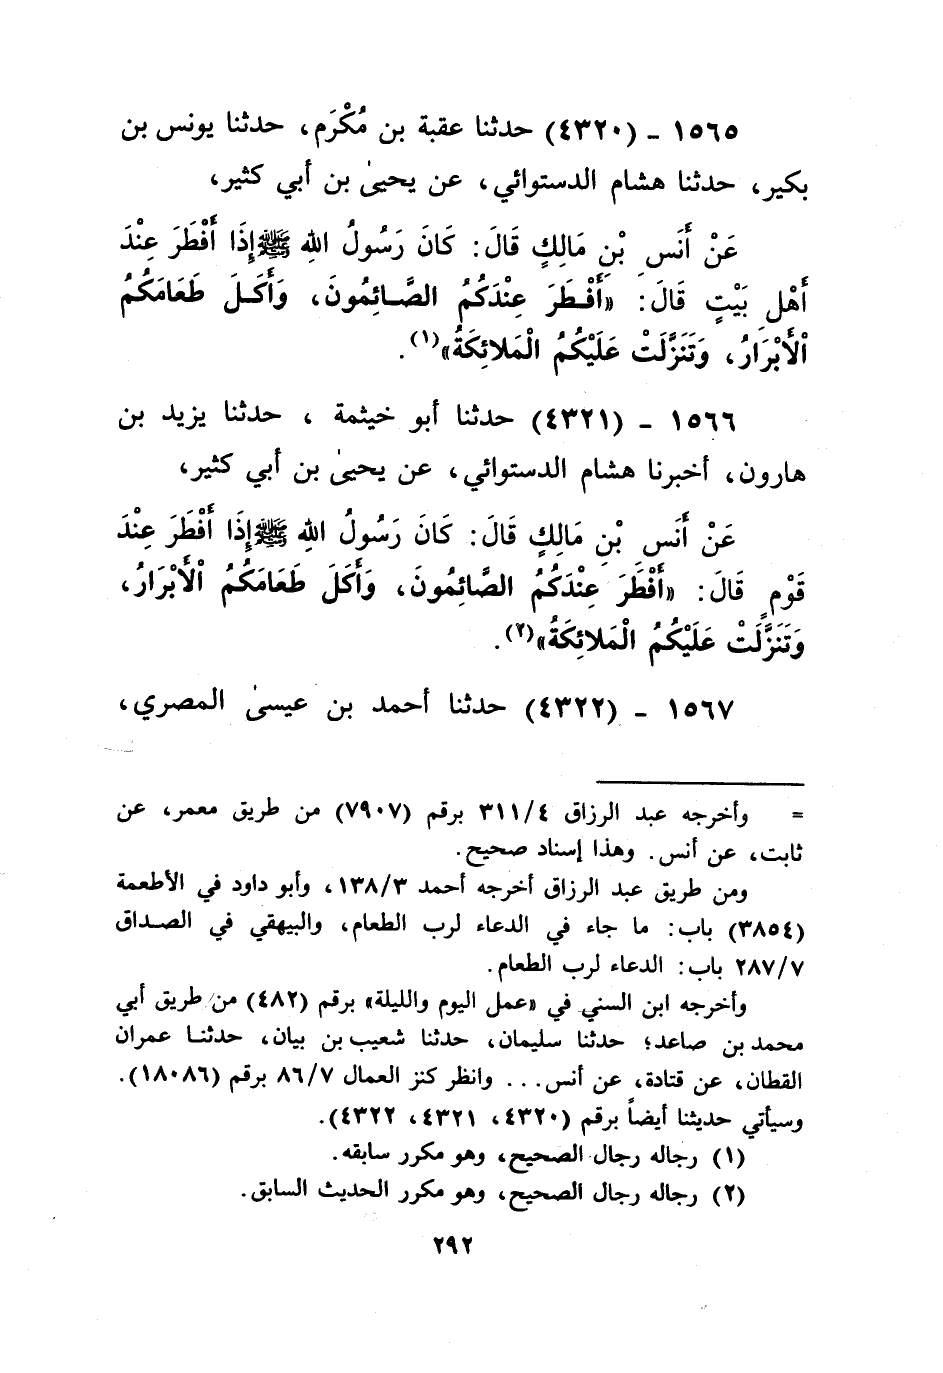 ١٥٦٥ - (٤٣٢٠) حدثنا عقبة بن مُكْرَم، حدثنا يونس بن
بكير، حدثنا هشام الدستوائي، عن يحيىٰ بن أبي كثير،
عَنْ أَنَسِ بْنِ مَالِكٍ قَالَ: كَانَ رَسُولُ اللهِ ﷺ إِذَا أَفْطَرَ عِنْدَ
أَهْلِ بَيْتٍ قَالَ: «أَفْطَرَ عِنْدَكُمُ الصَّائِمُونَ، وَأَكَلَ طَعَامَكُمُ
اْلأَبْرَارُ، وَتَنَزَّلَتْ عَلَيْكُمُ الْمَلائِكَةُ»(١).
١٥٦٦ - (٤٣٢١) حدثنا أبو خيثمة ، حدثنا يزيد بن
هارون، أخبرنا هشام الدستوائي، عن يحيىٰ بن أبي كثير،
عَنْ أَنَسِ بْنِ مَالِكٍ قَالَ: كَانَ رَسُولُ اللهِ ﷺ إِذَا أَفْطَرَ عِنْدَ
قَوْمٍ قَالَ: «أَفْطَرَ عِنْدَكُمُ الصَّائِمُونَ، وَأَكَلَ طَعَامَكُمُ اْلأَبْرَارُ،
وَتَنَزَّلَتْ عَلَيْكُمُ الْمَلائِكَةُ»(٢).
١٥٦٧ - (٤٣٢٢) حدثنا أحمد بن عيسىٰ المصري،
= وأخرجه عبد الرزاق ٣١١/٤ برقم (٧٩٠٧) من طريق معمر، عن
ثابت، عن أنس. وهذا إسناد صحيح.
ومن طريق عبد الرزاق أخرجه أحمد ١٣٨/٣، وأبو داود في الأطعمة
(٣٨٥٤) باب: ما جاء في الدعاء لرب الطعام، والبيهقي في الصداق
٢٨٧/٧ باب: الدعاء لرب الطعام.
وأخرجه ابن السني في «عمل اليوم والليلة» برقم (٤٨٢) من طريق أبي
محمد بن صاعد؛ حدثنا سليمان، حدثنا شعيب بن بيان، حدثنا عمران
القطان، عن قتادة، عن أنس... وانظر كنز العمال ٨٦/٧ برقم (١٨٠٨٦).
وسيأتي حديثنا أيضاً برقم (٤٣٢٠، ٤٣٢١، ٤٣٢٢).
(١) رجاله رجال الصحيح، وهو مكرر سابقه.
(٢) رجاله رجال الصحيح، وهو مكرر الحديث السابق.
٢٩٢